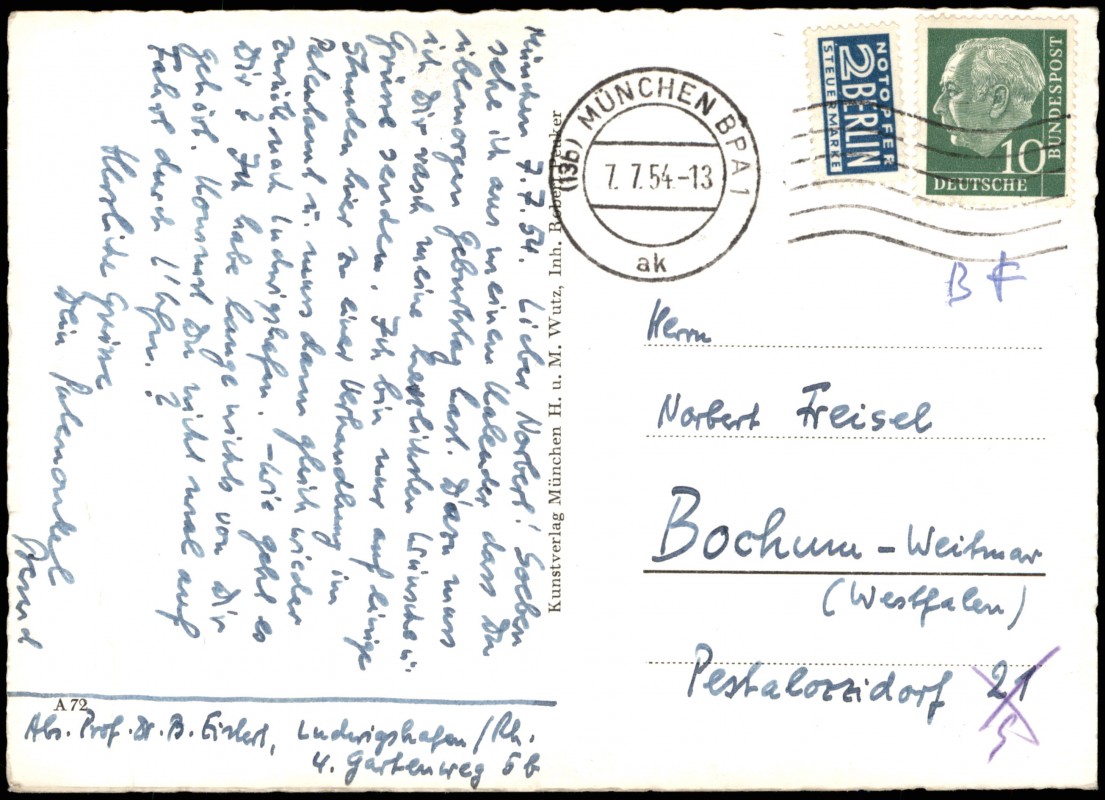 München 7.7.54. Lieber Norbert! Soeben
sehe ich aus meinem Kalender dass Du
übermorgen Geburtstag hast. Da muss
ich Dir rasch meine herzlichsten Wünsche u.
Grüsse senden. Ich bin nur auf einige
Stunden hier zu einer Verhandlung im
Patentamt u. muss dann gleich wieder
zurück nach Ludwigshafen. - Wie geht es
Dir? Ich habe lange nichts von Dir
gehört. Kommst Du nicht mal auf
Fahrt durch L'hfn.?
Herzliche Grüsse
Dein Patenonkel
Bernd
A 72
Abs. Prof. Dr. B. Eistert, Ludwigshafen/Rh.
4. Gartenweg 5b
Kunstverlag München H. u. M. Wutz, Inh. Robert Decker
(13b) MÜNCHEN BPA 1
7. 7. 54.-13
ak
NOTOPFER
2 BERLIN
STEUERMARKE
10
DEUTSCHE
BUNDESPOST
B F
Herrn
Norbert Freisel
Bochum - Weitmar
(Westfalen)
Pestalozzidorf 21
5